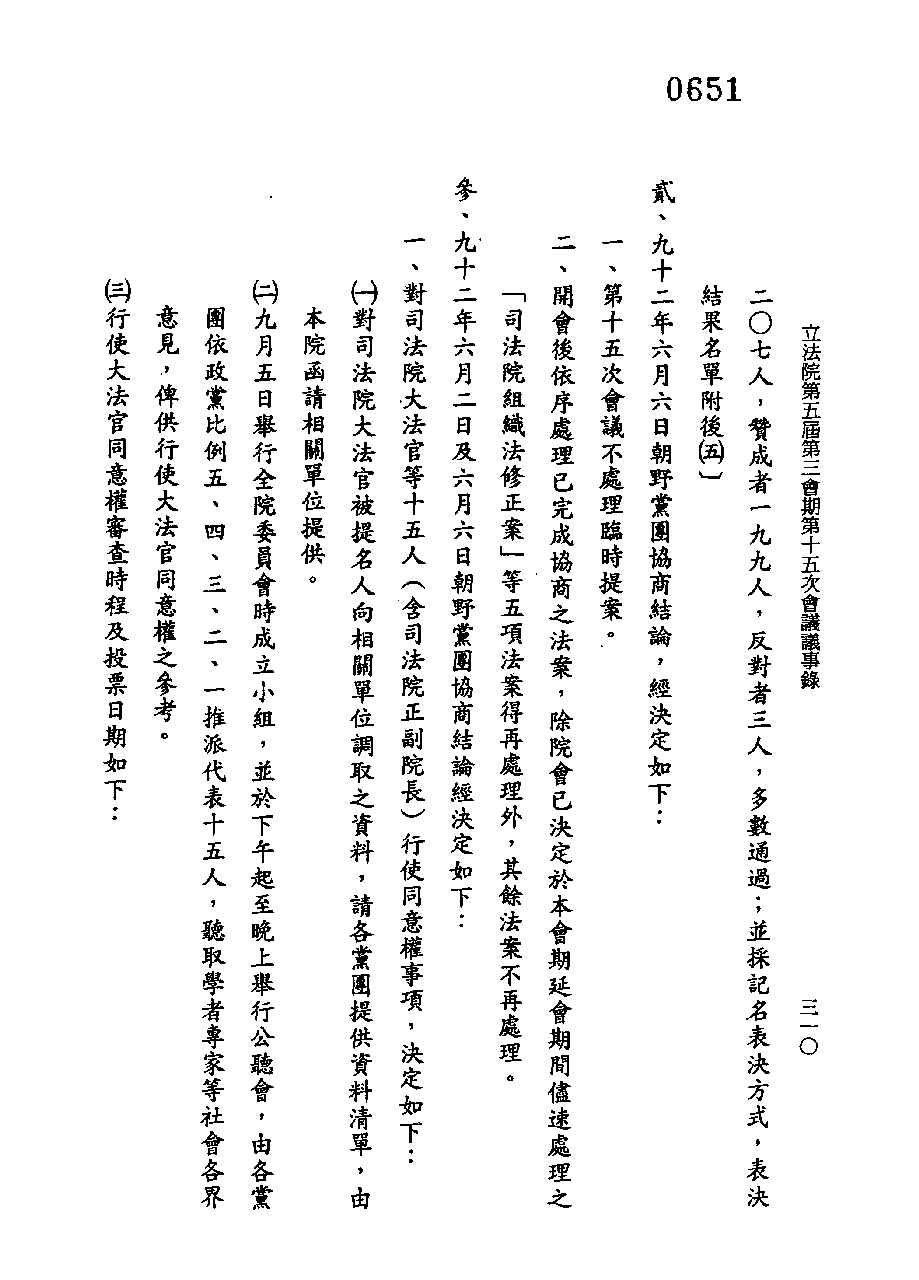 0651
立法院第五屆第三會期第十五次會議議事錄
三一〇
二〇七人，贊成者一九九人，反對者三人，多數通過；並採記名表決方式，表決
結果名單附後㈤〕
貳、九十二年六月六日朝野黨團協商結論，經決定如下：
一、第十五次會議不處理臨時提案。
二、開會後依序處理已完成協商之法案，除院會已決定於本會期延會期間儘速處理之
「司法院組織法修正案」等五項法案得再處理外，其餘法案不再處理。
參、九十二年六月二日及六月六日朝野黨團協商結論經決定如下：
一、對司法院大法官等十五人（含司法院正副院長）行使同意權事項，決定如下：
㈠對司法院大法官被提名人向相關單位調取之資料，請各黨團提供資料清單，由
本院函請相關單位提供。
㈡九月五日舉行全院委員會時成立小組，並於下午起至晚上舉行公聽會，由各黨
團依政黨比例五、四、三、二、一推派代表十五人，聽取學者專家等社會各界
意見，俾供行使大法官同意權之參考。
㈢行使大法官同意權審查時程及投票日期如下：